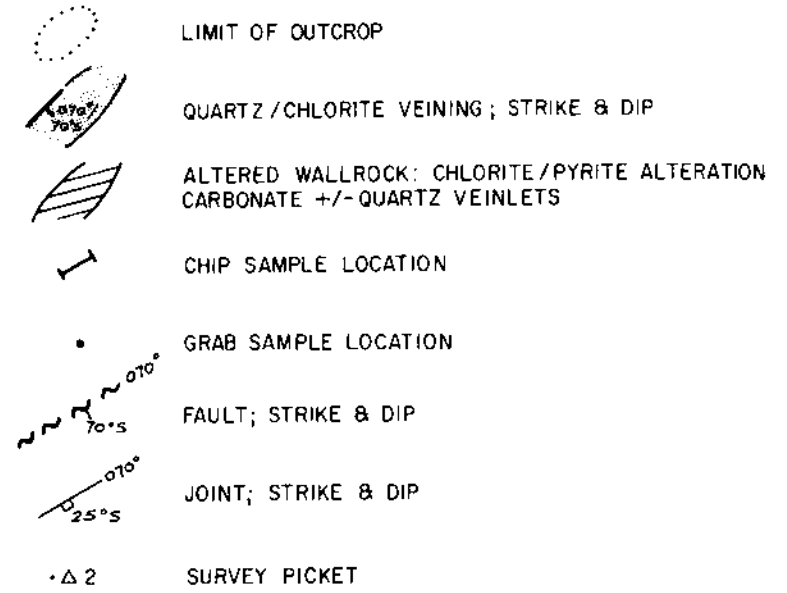 LIMIT OF OUTCROP
070°
70°S
QUARTZ/CHLORITE VEINING; STRIKE & DIP
ALTERED WALLROCK: CHLORITE/PYRITE ALTERATION
CARBONATE +/-QUARTZ VEINLETS
CHIP SAMPLE LOCATION
GRAB SAMPLE LOCATION
070°
70°S
FAULT; STRIKE & DIP
070°
25°S
JOINT; STRIKE & DIP
·Δ 2 SURVEY PICKET